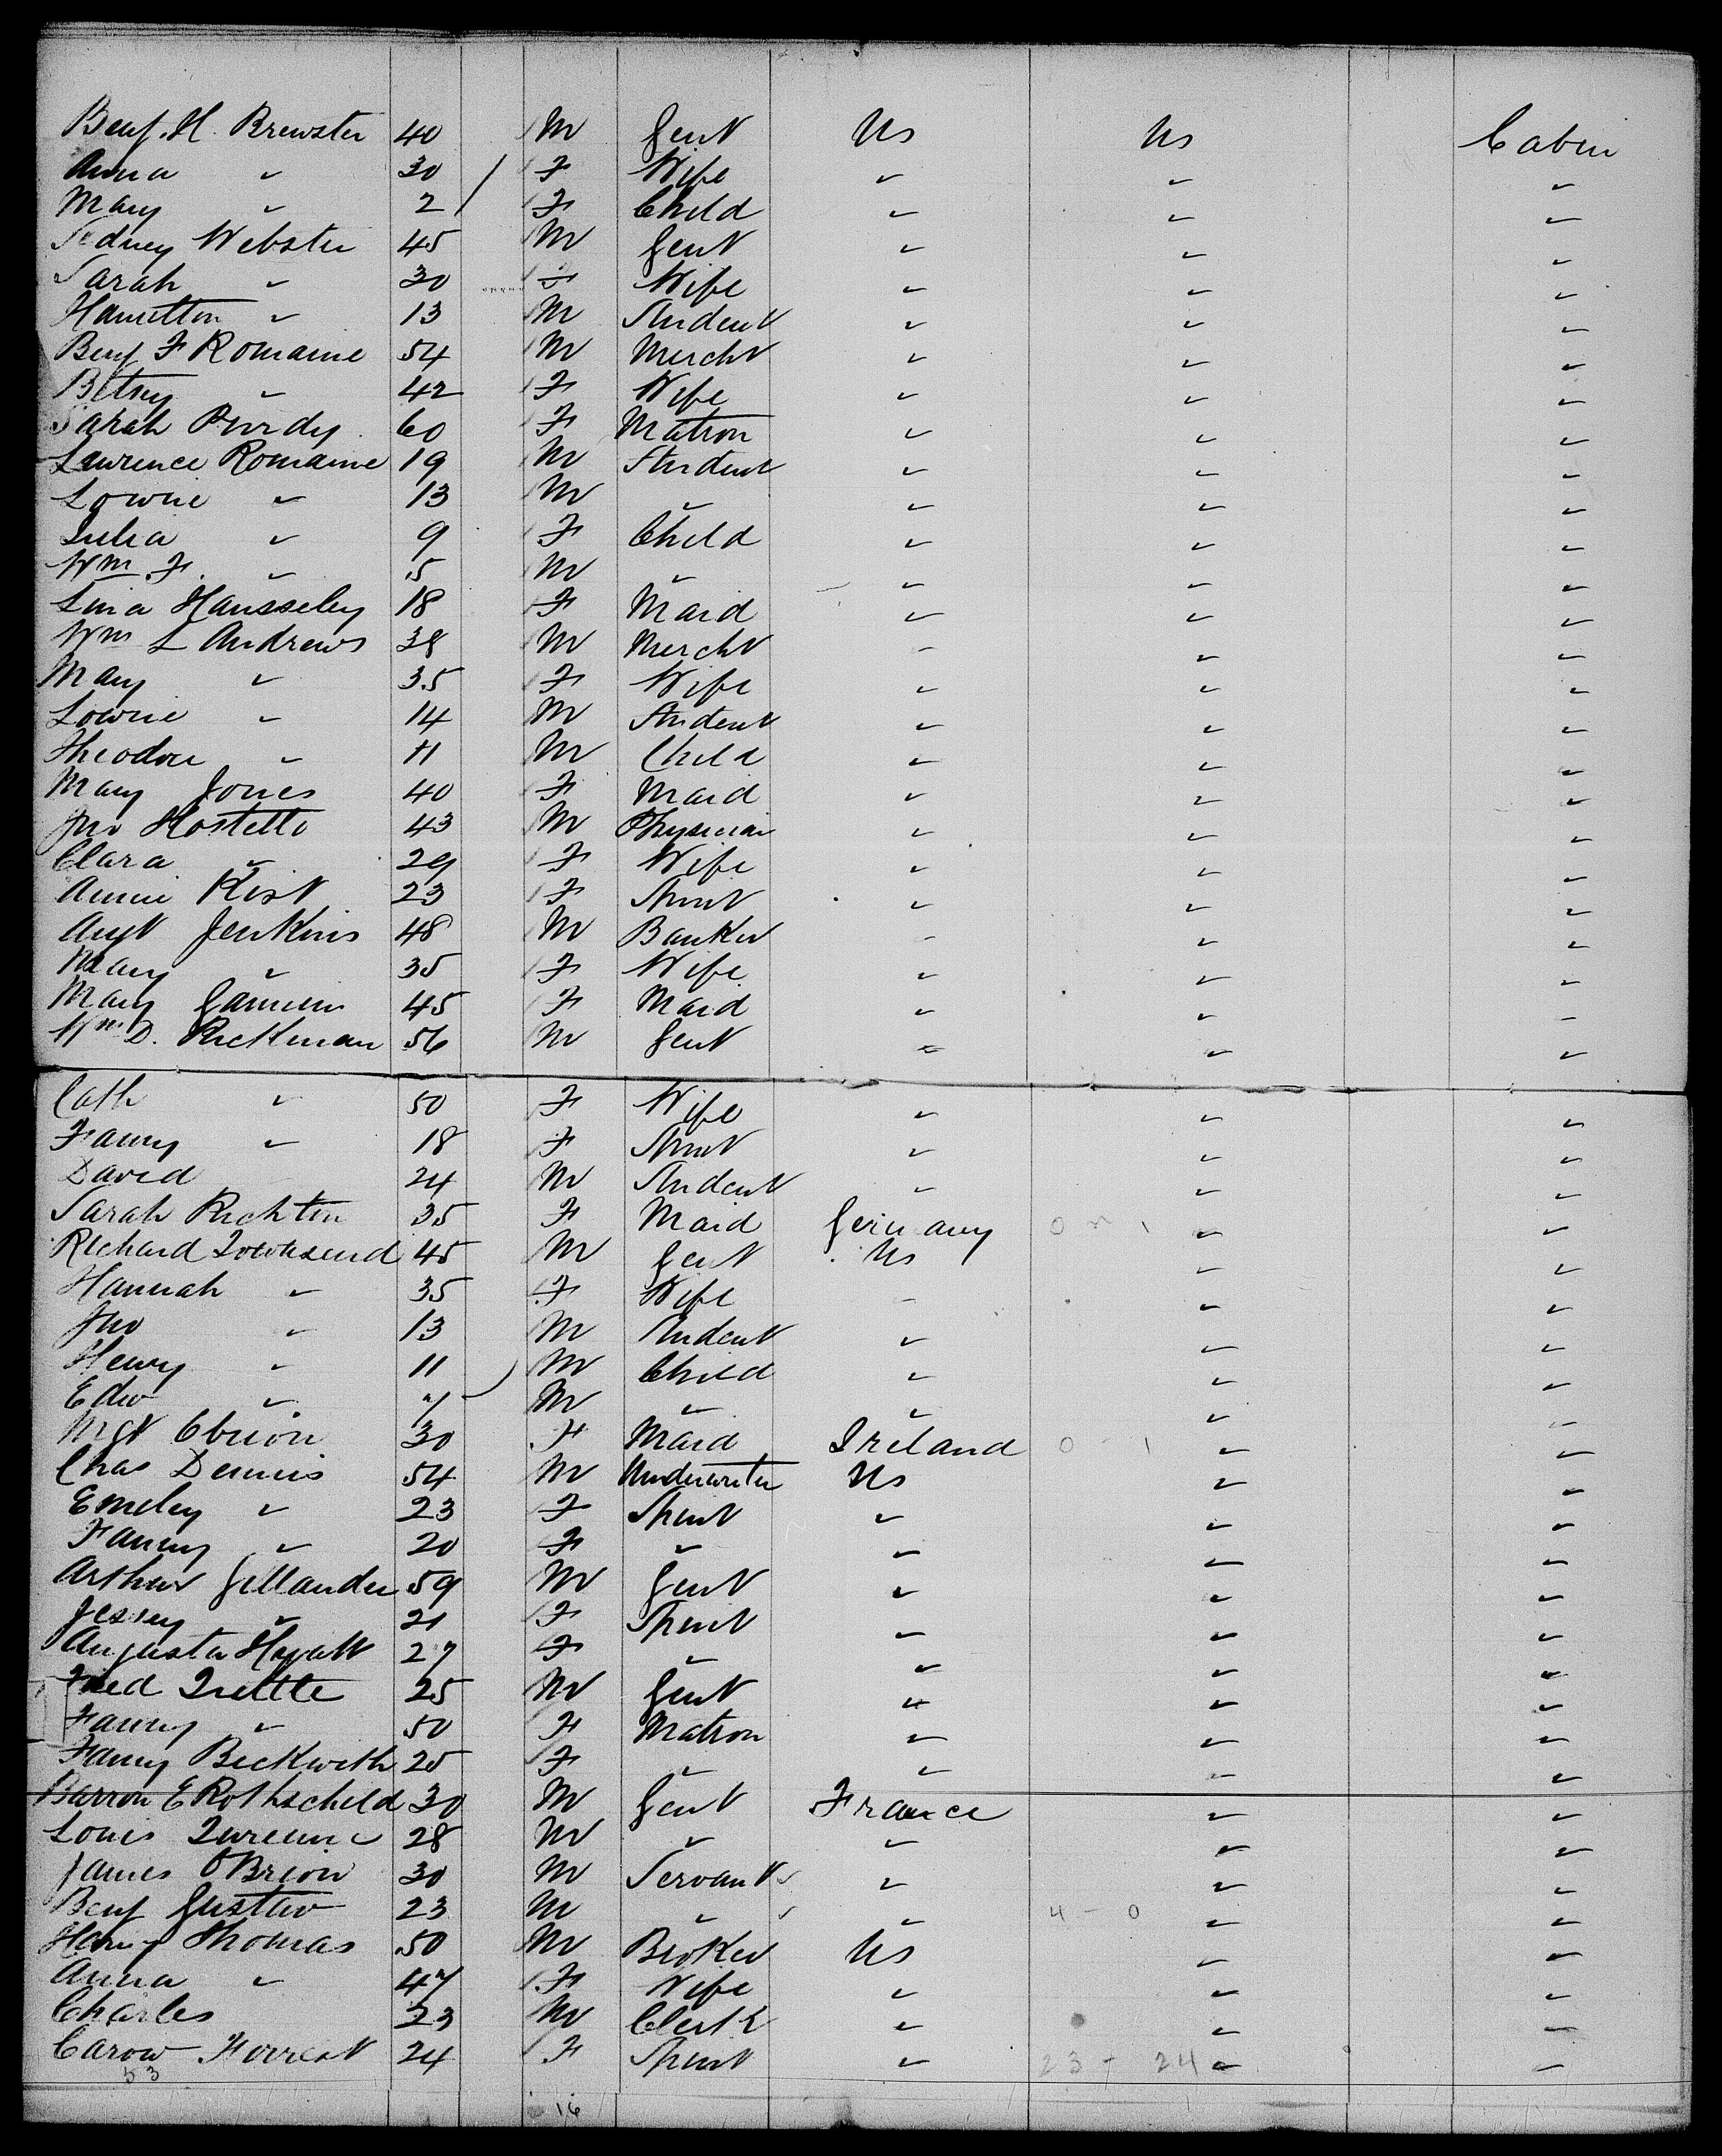 Benj. H. Brewster 40 M Gent Us Us Cabin
Anna " 30 F Wife " " "
Mary " 2 F Child " " "
Sidney Webster 45 M Gent " " "
Sarah " 30 F Wife " " "
Hamilton " 13 M Student " " "
Benj F Romaine 54 M Mercht " " "
Betsey " 42 F Wife " " "
Sarah Purdy 60 F Matron " " "
Lawrence Romaine 19 M Student " " "
Lowrie " 13 M " " " "
Julia " 9 F Child " " "
Wm. F. " 5 M " " " "
Lina Hausseley 18 F Maid " " "
Wm L Andrews 38 M Mercht " " "
Mary " 35 F Wife " " "
Lowrie " 14 M Student " " "
Theodore " 11 M Child " " "
Mary Jones 40 F Maid " " "
Jno Hostette 43 M Physician " " "
Clara " 29 F Wife " " "
Annie Kist 23 F Spinst " " "
Augt Jenkins 48 M Banker " " "
Mary " 35 F Wife " " "
Mary 45 F Maid " " "
Wm D. Pickman 56 M Gent " " "
Cath " 50 F Wife " " "
Fanny " 18 F Spinst " " "
David 24 M Student " " "
Sarah Richter 35 F Maid Germany 0 - 1 " "
Richard Townsend 45 M Gent Us " "
Hannah " 35 F Wife " " "
Jno " 13 M Student " " "
Henry " 11 M Child " " "
Edw " 7 M " " " "
Mgt Obrion 30 F Maid Ireland 0 - 1 " "
Chas Dennis 54 M Underwriter Us " "
Emeley " 23 F Spinst " " "
Fanny " 20 F " " " "
Arthur Gillander 59 M Gent " " "
Jessey " 21 F Spinst " " "
Augusta Hyatt 27 F " " " "
Fred 25 M Gent " " "
Fanny " 50 F Matron " " "
Fanny Beckwith 25 F " " " "
Barron E Rothscheld 30 M Gent France " "
Louis 28 M " " " "
James OBrion 30 M Servant " " "
Benj 23 M " " 4 - 0 " "
Henry Thomas 50 M Broker Us " "
Anna " 47 F Wife " " "
Charles 23 M Clerk " " "
Carow Forrest 24 F Spinst " 23 + 24 " "
53
16